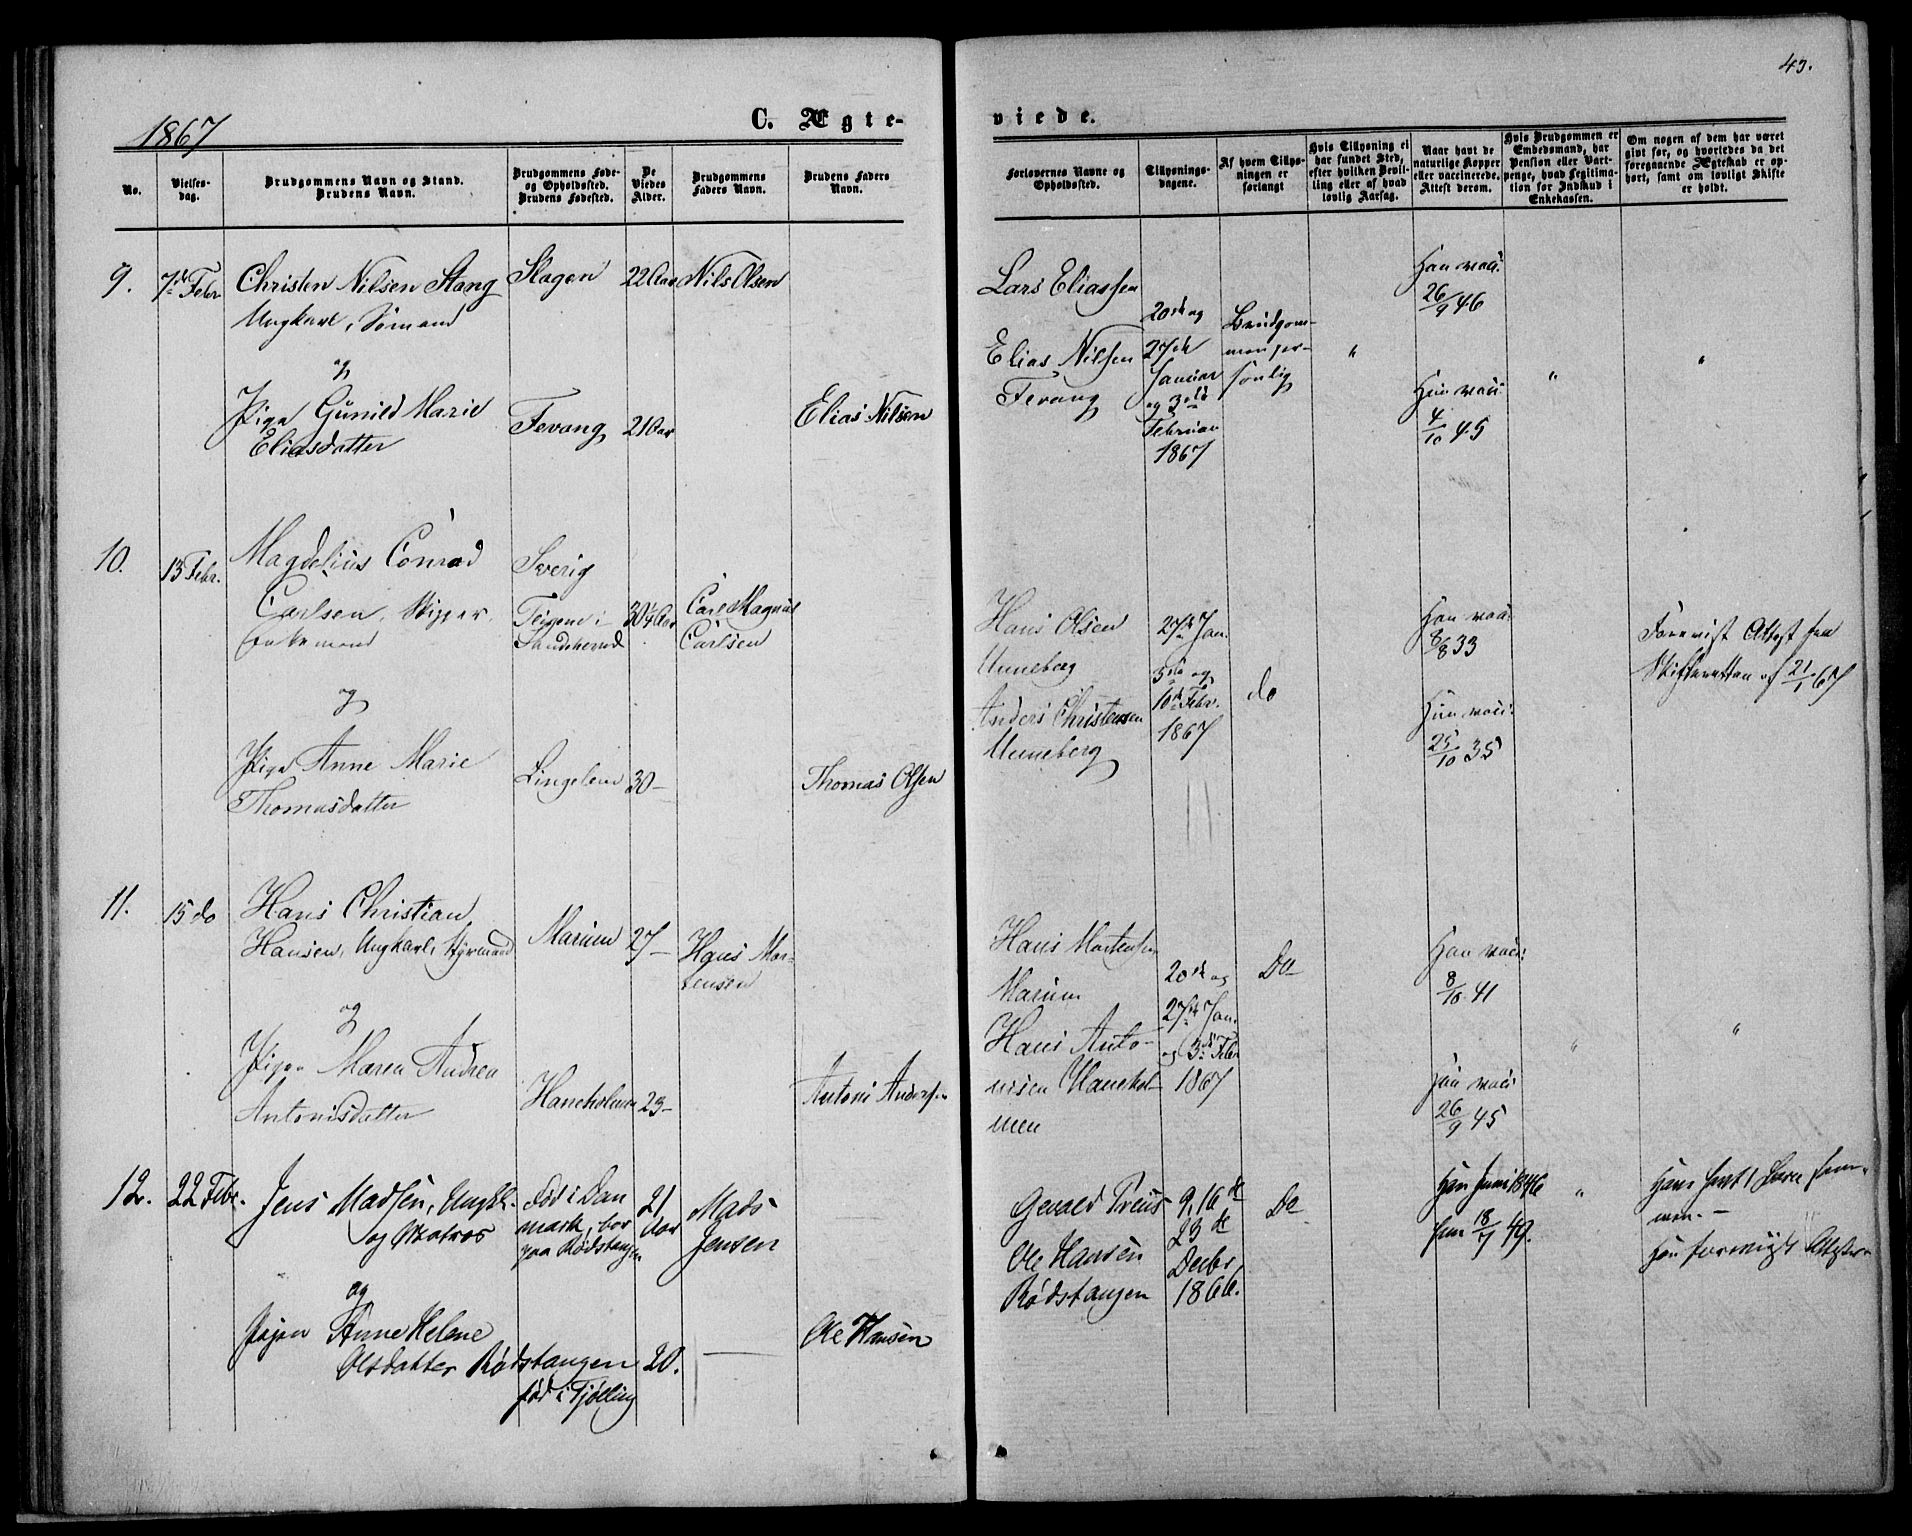 43.
1867
C. Ægte-
viede.
No.
Vielses-
dag.
Brudgommens Navn og Stand.
Brudens Navn.
Brudgommens Føde-
og Opholdssted.
Brudens Fødested.
De
Viedes
Alder.
Brudgommens
Faders Navn.
Brudens Faders
Navn.
Forlovernes Navne og
Opholdssted.
Tillysnings-
dagene.
Af hvem Tillys-
ningen er
forlangt
Hvis Tillysning ei
har fundet Sted,
efter hvilken Bevil-
ling eller af hvad
lovlig Aarsag.
Naar havt de
naturlige Kopper
eller vaccinerede.
Attest derom.
Hvis Brudgommen er
Embedsmand, har
Pension eller Vart-
penge, hvad Legitima-
tion for Indskud i
Enkekassen.
Om nogen af dem har været
gift før, og hvorledes da det
foregaaende Ægteskab er op-
hørt, samt om lovligt Skifte
er holdt.
9.
7de Febr
Christen Nilsen Stang
Ungkarl, Sømand
og
Pige Gunild Marie
Eliasdatter
Slagen
Fevang
22 Aar
21 Aar
Nils Olsen
Elias Nilsen
Lars Eliassen
Elias Nilsen
Fevang
20de og
27de
Januar
og 3die
Februar
1867
Brudgom-
men per-
sonlig
"
Han vacc:
26/9 46
Hun vacc:
4/10 45
"
"
10.
13 Febr.
Magdelius Conrad
Carlsen, Skipper
Enkemand
og
Pige Anne Marie
Thomasdatter
Sverig
Teigene i
Sandeherred
Lingelem
30 1/4 Aar
30 –
Carl Magnus
Carlsen
Thomas Olsen
Hans Olsen
Unneberg
Anders Christensen
Unneberg
27de Jan.
3die og
10de Febr.
1867
do
Han vacc:
8/8 33
Hun vacc:
25/10 35
Forevist Attest fra
Skifteretten af 21/1 67
11.
15 do
Hans Christian
Hansen, Ungkarl, Styrmand
og
Pige Maren Andrea
Antonisdatter
Marum
Haneholmen
27 –
23 –
Hans Mor-
tensen
Antoni Andersen
Hans Mortensen
Marum
Hans Anto-
nisen Hanehol-
men
20de og
27de Jan.
og 3die Febr
1867
Do
Han vacc:
8/10 41
Hun vacc:
26/9 45
"
"
12.
22 Febr.
Jens Madsen, Ungk.
og Matros
og
Pigen Anne Helene
Olsdatter Rødstangen
Fød i Dan
mark, bor
paa Rødstangen
fød i Tjølling
21
Aar
20.
Mads
Jensen
Ole Hansen
Gerald Preus
Ole Hansen
Rødstangen
9, 16de
23de
Decbr
1866.
Do
Han Juni 1846
hun 18/7 49.
"